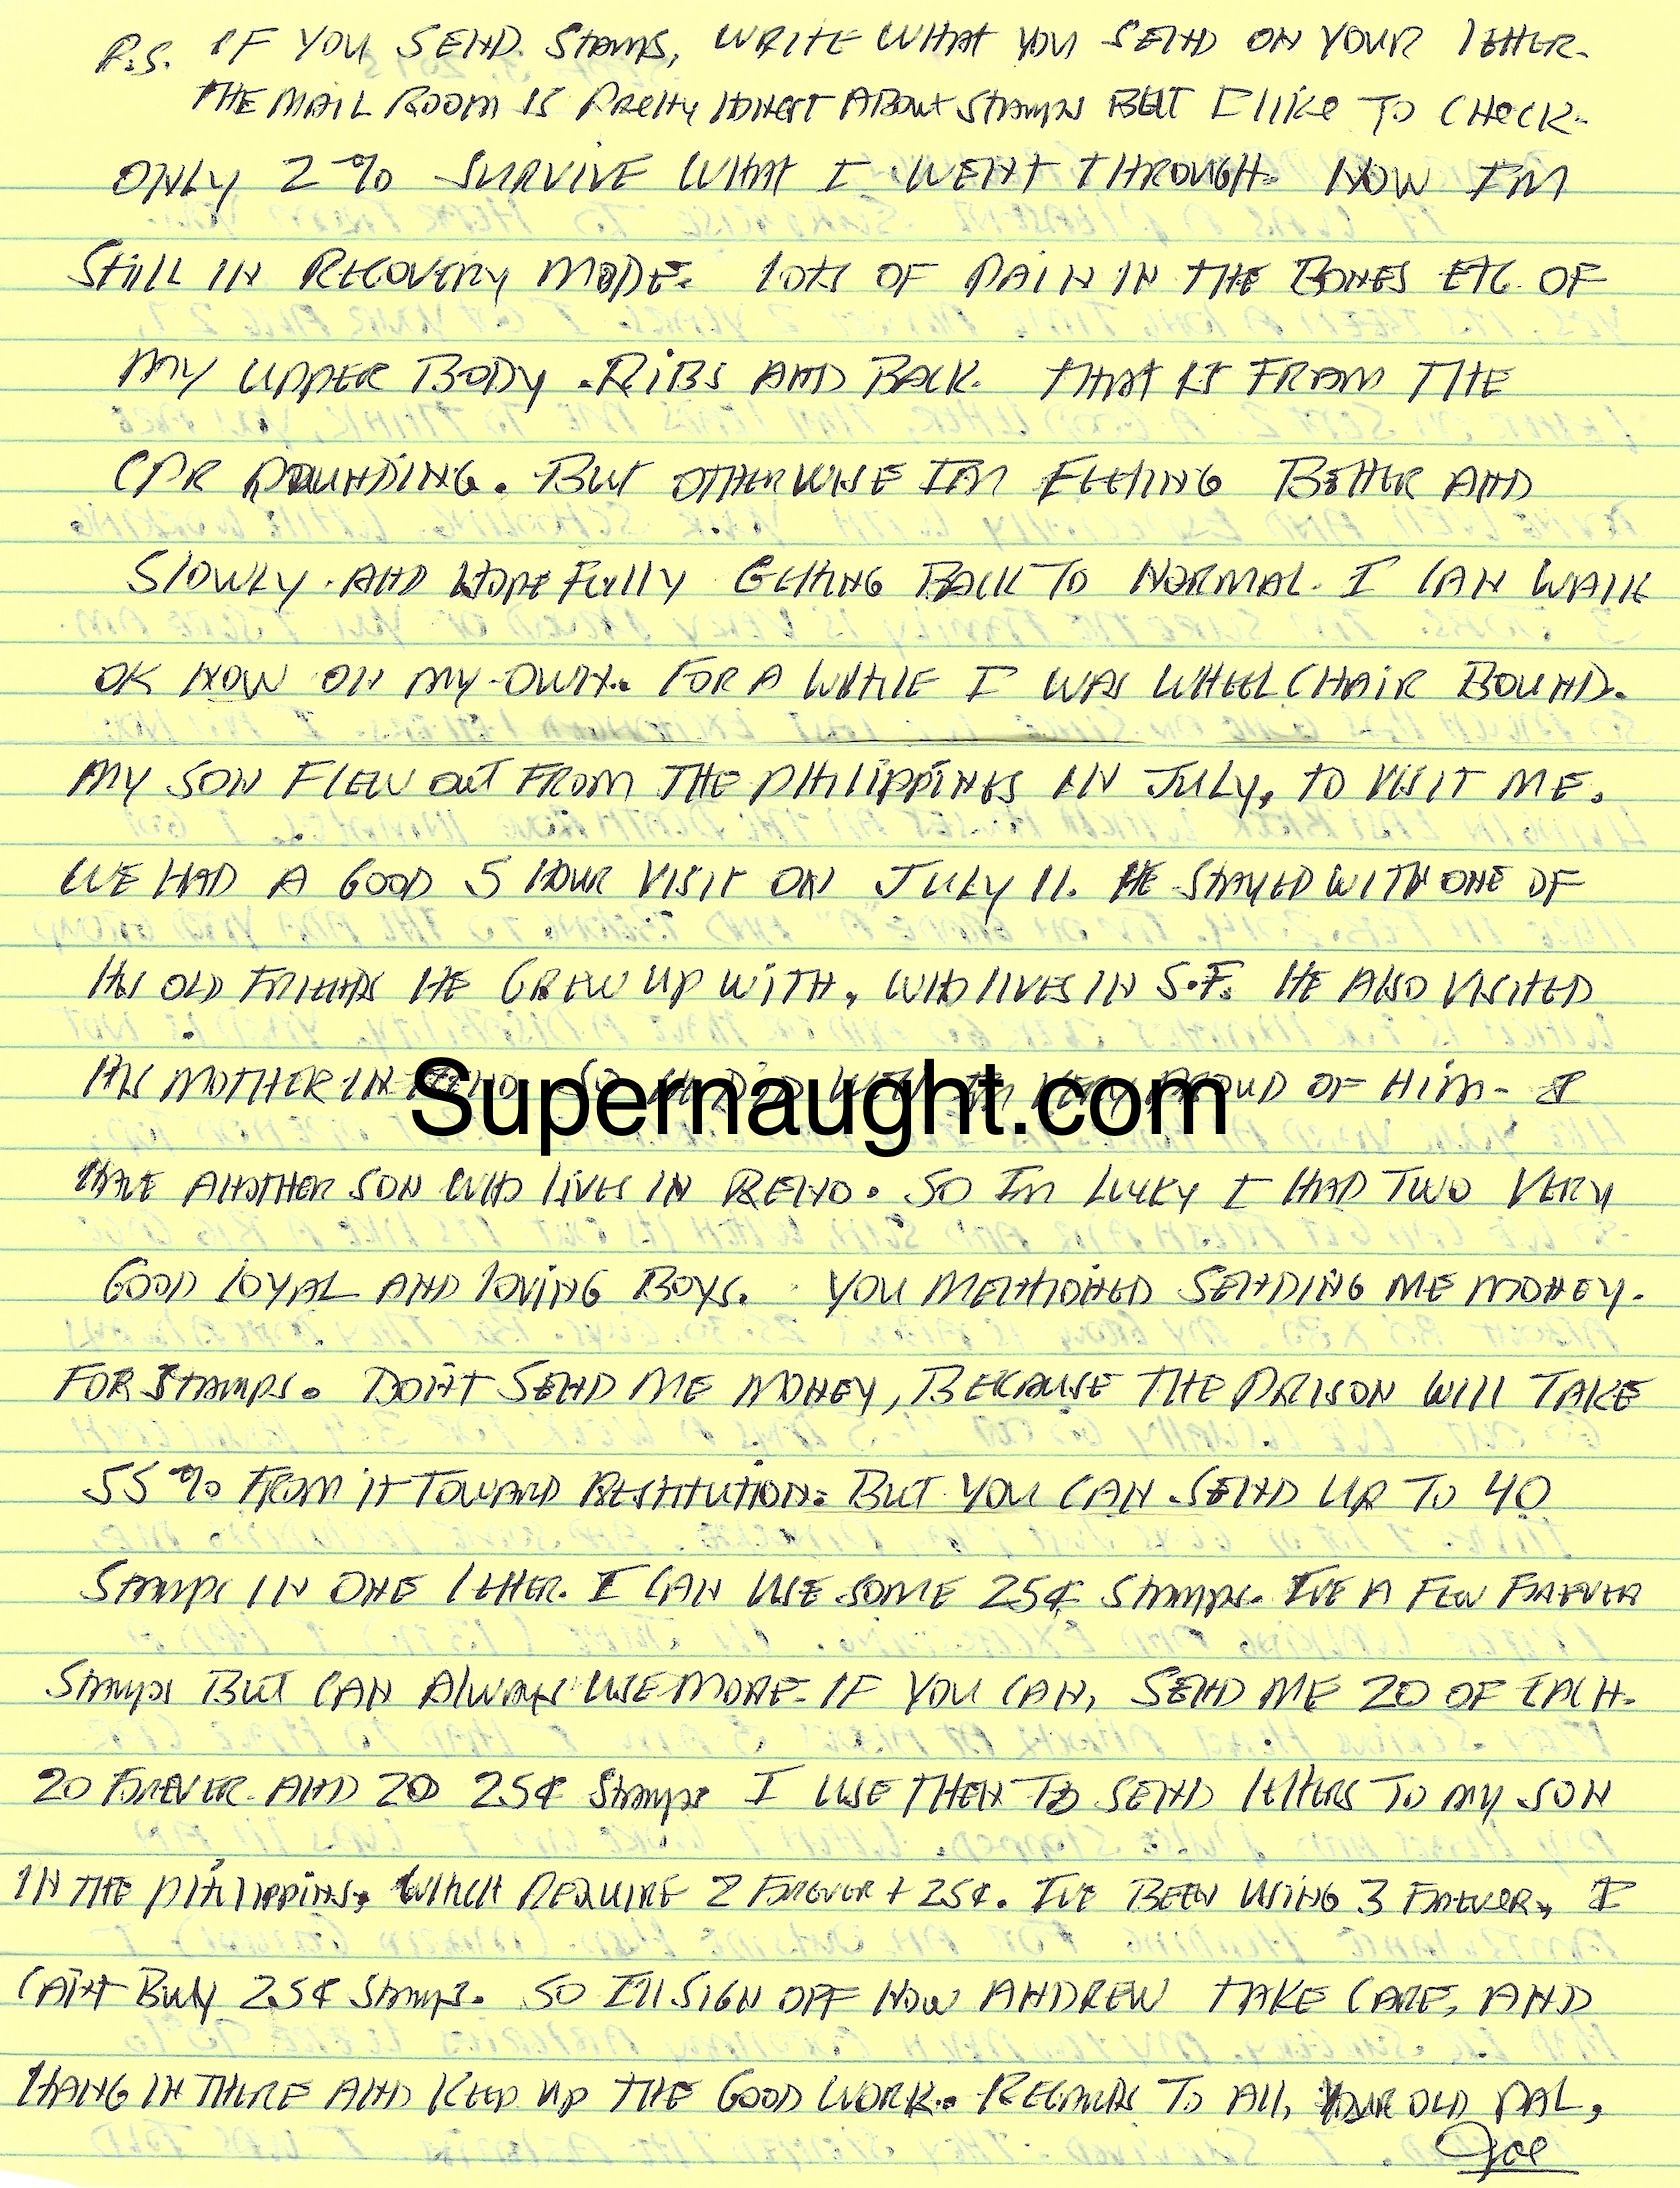 P.S. IF YOU SEND STAMPS, WRITE WHAT YOU SEND ON YOUR LETTER.
THE MAIL ROOM IS PRETTY HONEST ABOUT STAMPS BUT I LIKE TO CHECK.
ONLY 2% SURVIVE WHAT I WENT THROUGH. NOW I'M
STILL IN RECOVERY MODE. LOTS OF PAIN IN THE BONES ETC. OF
MY UPPER BODY. RIBS AND BACK. THAT IS FROM THE
CPR POUNDING. BUT OTHERWISE I'M FEELING BETTER AND
SLOWLY. AND HOPEFULLY GETTING BACK TO NORMAL. I CAN WALK
OK NOW ON MY OWN. FOR A WHILE I WAS WHEELCHAIR BOUND.
MY SON FLEW OUT FROM THE PHILIPPINES IN JULY, TO VISIT ME.
WE HAD A GOOD 5 HOUR VISIT ON JULY 11. HE STAYED WITH ONE OF
HIS OLD FRIENDS HE GREW UP WITH, WHO LIVES IN S.F. HE ALSO VISITED
HIS MOTHER IN RENO. SO PROUD OF HIM. I
Supernaught.com
HAVE ANOTHER SON WHO LIVES IN RENO. SO I'M LUCKY I HAD TWO VERY
GOOD LOYAL AND LOVING BOYS. YOU MENTIONED SENDING ME MONEY.
FOR STAMPS. DON'T SEND ME MONEY, BECAUSE THE PRISON WILL TAKE
55% FROM IT TOWARD RESTITUTION. BUT YOU CAN SEND UP TO 40
STAMPS IN ONE LETTER. I CAN USE SOME 25¢ STAMPS. I'VE A FEW FOREVER
STAMPS BUT CAN ALWAYS USE MORE. IF YOU CAN, SEND ME 20 OF EACH.
20 FOREVER AND 20 25¢ STAMPS I USE THEM TO SEND LETTERS TO MY SON
IN THE PHILIPPINES, WHICH REQUIRE 2 FOREVER + 25¢. I'VE BEEN USING 3 FOREVER, I
CAN'T BUY 25¢ STAMPS. SO I'LL SIGN OFF NOW ANDREW TAKE CARE, AND
HANG IN THERE AND KEEP UP THE GOOD WORK. REGARDS TO ALL, YOUR OLD PAL,
Joe